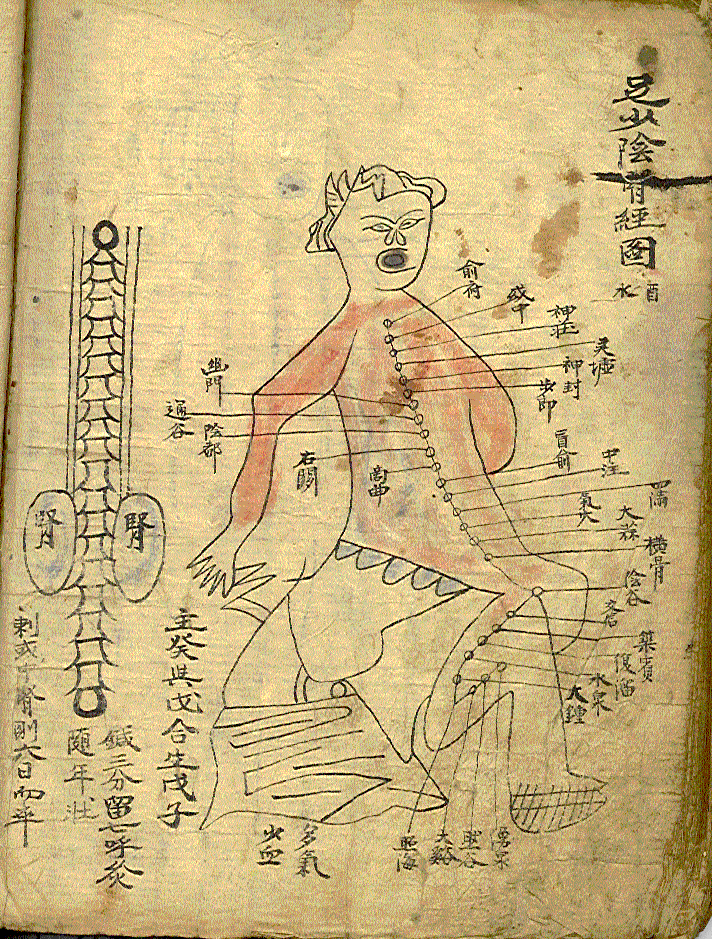 足少陰腎經圖
水 酉
俞府
或中
神莊
灵墟
神封
步郎
肓俞
中注
四滿
氣穴
大赫
橫骨
陰谷
交信
築賓
復溜
水泉
大鍾
湧泉
然谷
大谿
照海
幽門
通谷
陰都
右關
商曲
腎
腎
主癸與戊合生戊子
多氣
少血
鍼三分留七呼灸
隨年壯